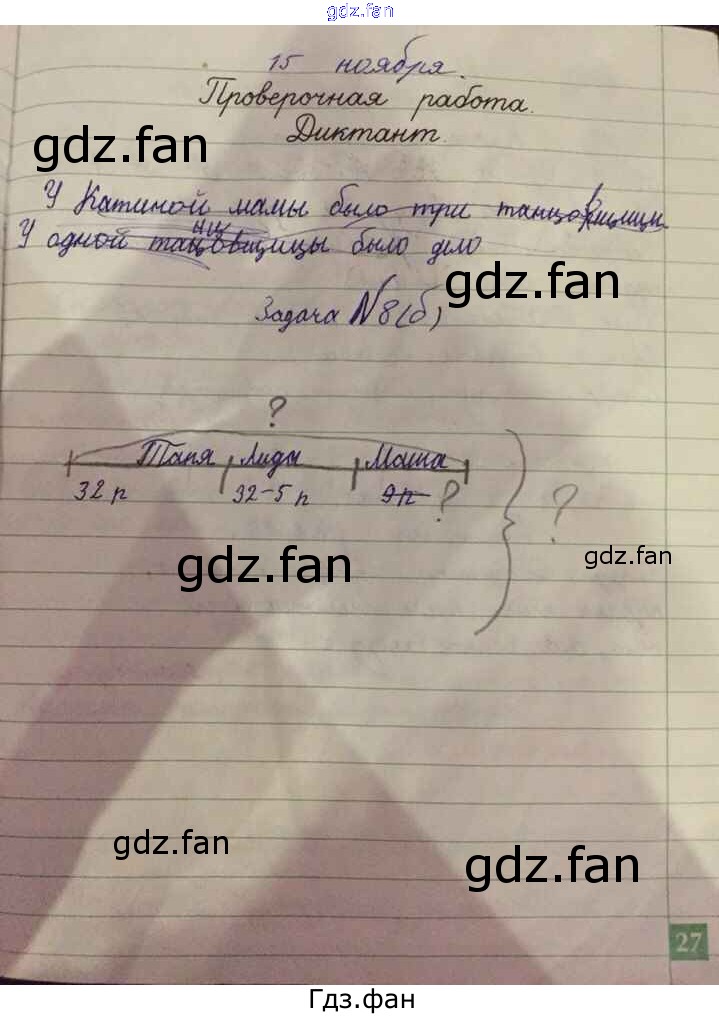 gdz.fan
15 ноября.
Проверочная работа.
gdz.fan
Диктант.
У Катиной мамы было три танцовщицы.
У одной было дело
gdz.fan
Задача №8(б)
?
Таня Лиды Маша
32 п 32-5 п 9 п ? ?
gdz.fan
gdz.fan
gdz.fan
gdz.fan
27
Гдз.фан